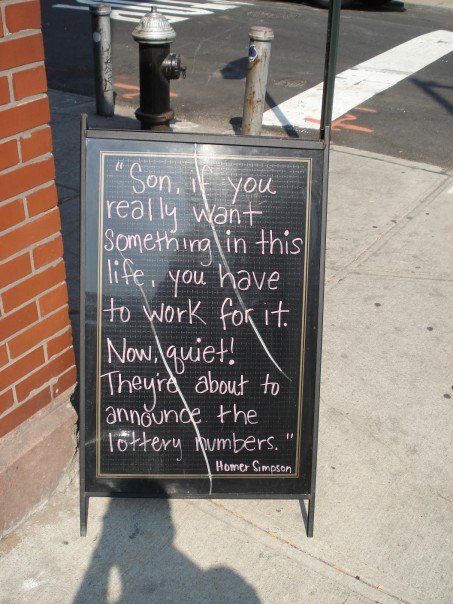 "Son, if you
really want
something in this
life, you have
to work for it.
Now, quiet!
They're about to
announce the
lottery numbers."
Homer Simpson